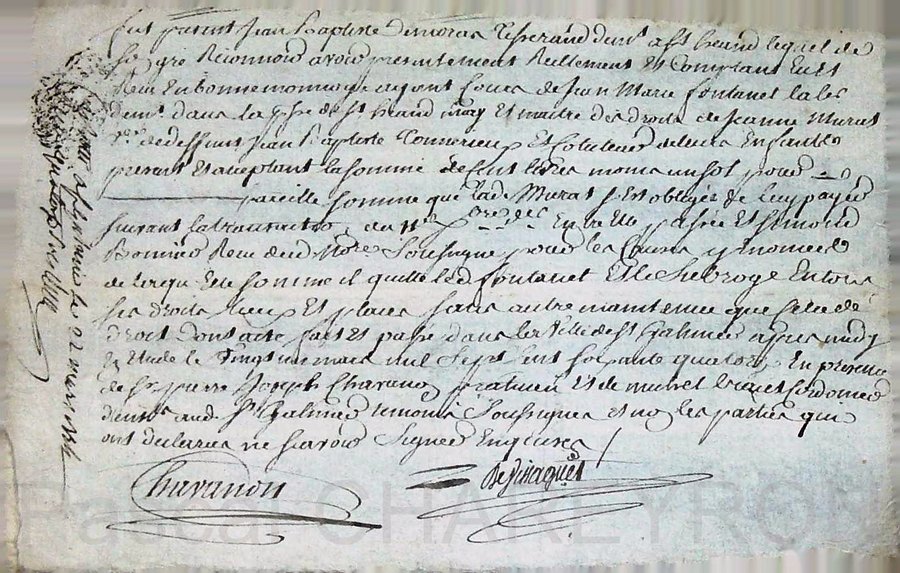 fut present Jean Baptiste Dimoras tisserand demt a st heand lequel de
son gre Reconnois avoir presentement Reellement Et Comptant Eu Et
Receu En bonne monnoye ayant Cours de Jean Marie fontanet labr
demt dans la psse de st heand mary Et maitre des droits de Jeanne Murat
vve de deffunt Jean Baptiste Tonnerieux Et de leurs Enfants
present Et aceptant la somme de cent livres moins un sol pour
pareille somme que lade Murat s'Est obligée de luy payer
suivant la du Entre Elle passée Et
Receu dud Nore Soussigné pour les Causes y
de laquelle somme il quitte led fontanet Et le Subroge En tous
ses droits lieux Et places sans autre maintenue que celle de
droit dont acte fait Et passé dans la Ville de st Galmier apres midy
En Etude le Vingt un mars mil Sept cent soixante quatorze En presence
de sr pierre Joseph Chavanon praticien Et de Cordonnier
demts aud st Galmier temoins Soussignés Et non les parties qui
ont declarées ne sçavoir Signer Enquises
Chavanon
le 22 mars 1774
Pascal CHARLEYRON